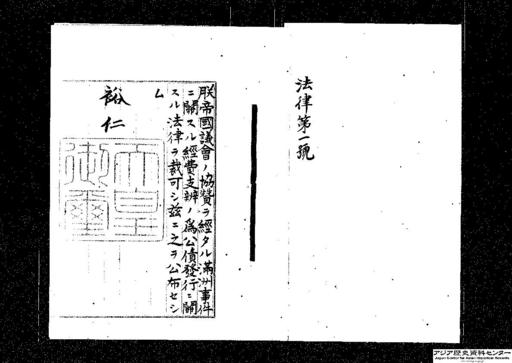 法律第一號
朕帝國議會ノ協贊ヲ經タル滿洲事件
ニ關スル經費支辨ノ爲公債發行ニ關
スル法律ヲ裁可シ玆ニ之ヲ公布セシ
ム
裕仁
天皇
御璽
アジア歴史資料センター
Japan Center for Asian Historical Records